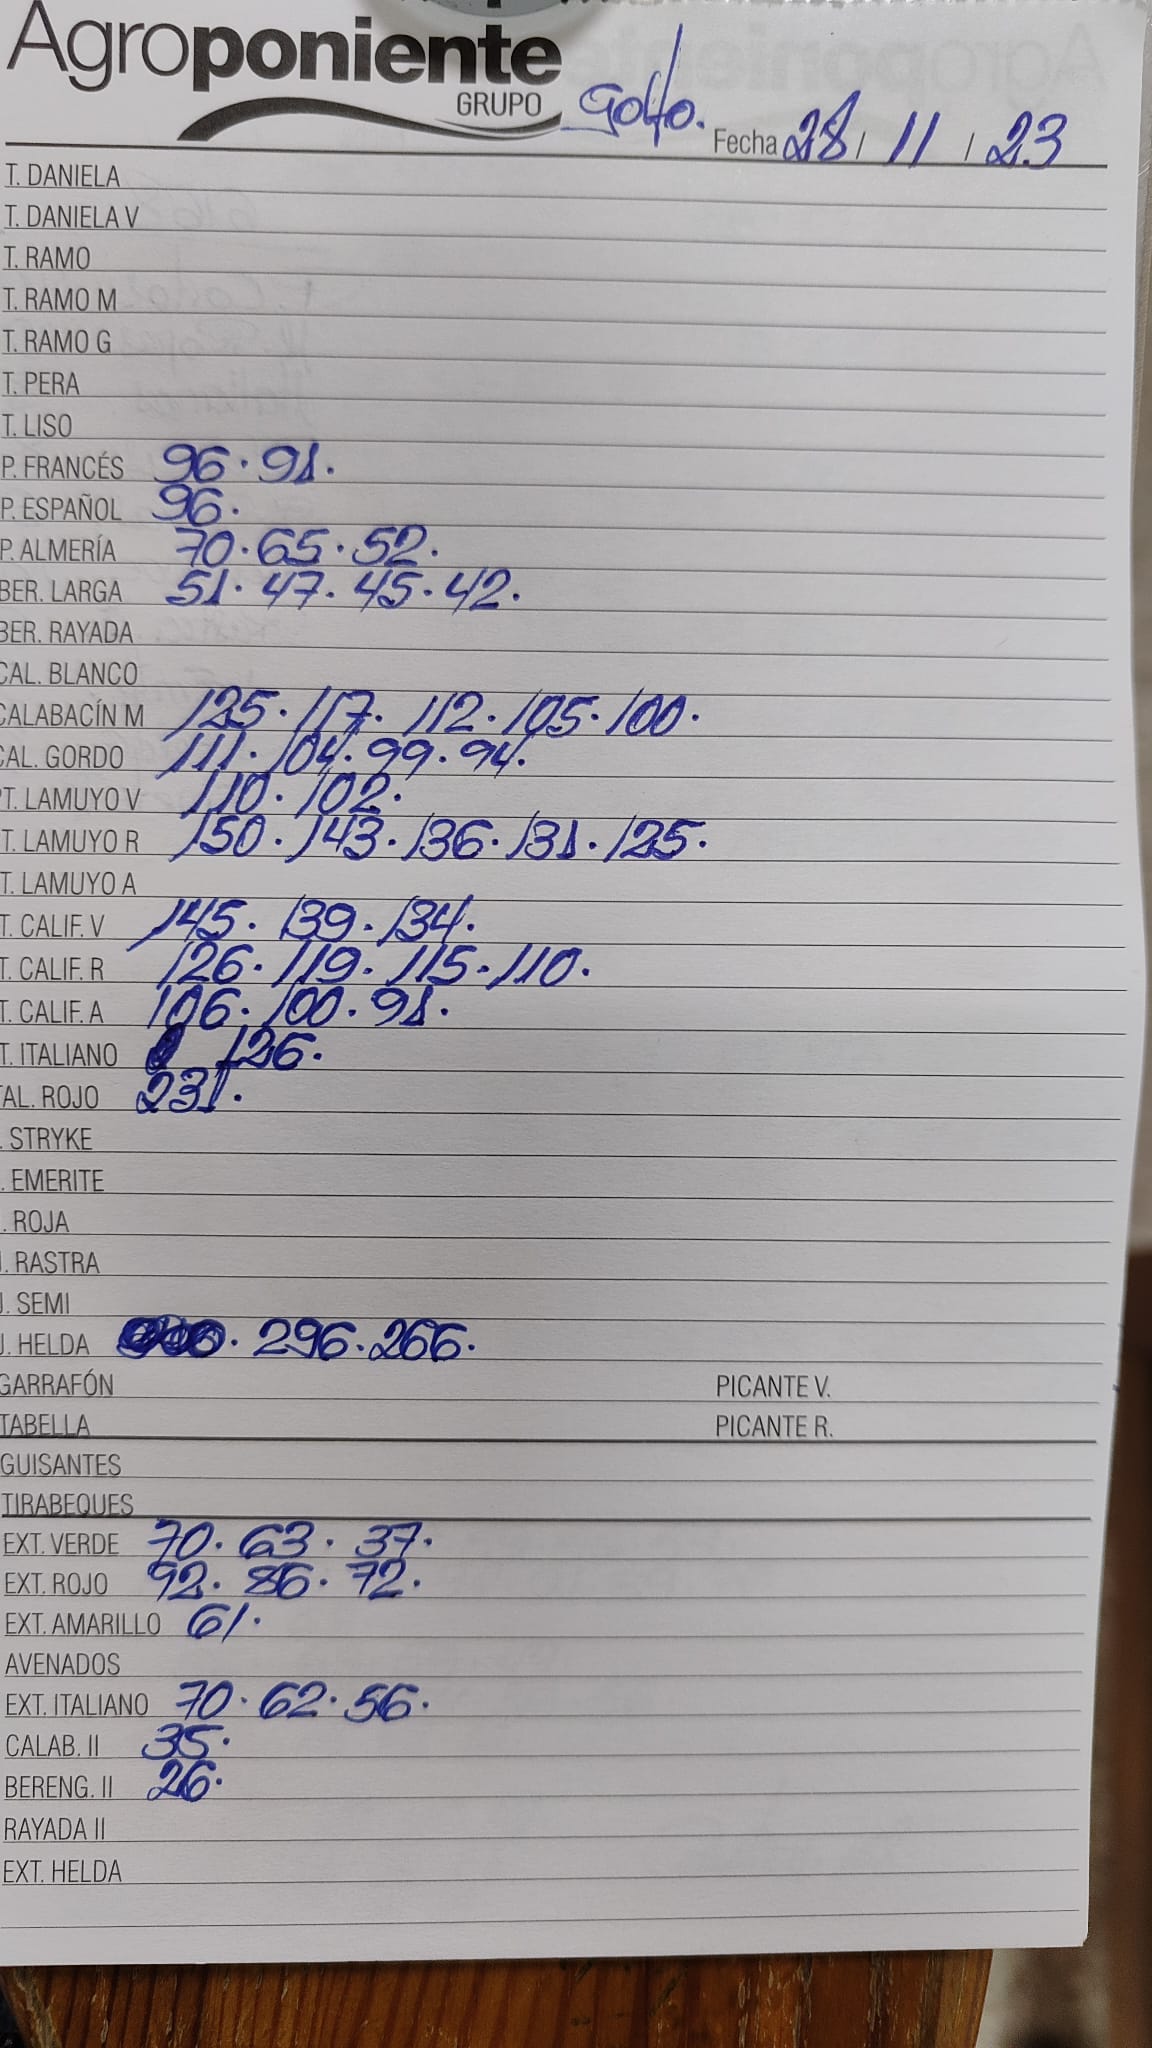 Agroponiente
GRUPO
Golfo.
Fecha 28 / 11 / 23
T. DANIELA
T. DANIELA V
T. RAMO
T. RAMO M
T. RAMO G
T. PERA
T. LISO
P. FRANCÉS 96. 91.
P. ESPAÑOL 96.
P. ALMERÍA 70. 65. 52.
BER. LARGA 51. 47. 45. 42.
BER. RAYADA
CAL. BLANCO
CALABACÍN M 125. 117. 112. 105. 100.
CAL. GORDO 111. 104. 99. 94.
PT. LAMUYO V 110. 102.
T. LAMUYO R 150. 143. 136. 131. 125.
T. LAMUYO A
T. CALIF. V 145. 139. 134.
T. CALIF. R 126. 119. 115. 110.
T. CALIF. A 106. 100. 91.
T. ITALIANO 126.
AL. ROJO 231.
. STRYKE
. EMERITE
. ROJA
J. RASTRA
J. SEMI
J. HELDA . 296. 266.
GARRAFÓN PICANTE V.
TABELLA PICANTE R.
GUISANTES
TIRABEQUES
EXT. VERDE 70. 63. 37.
EXT. ROJO 92. 86. 72.
EXT. AMARILLO 61.
AVENADOS
EXT. ITALIANO 70. 62. 56.
CALAB. II 35.
BERENG. II 26.
RAYADA II
EXT. HELDA